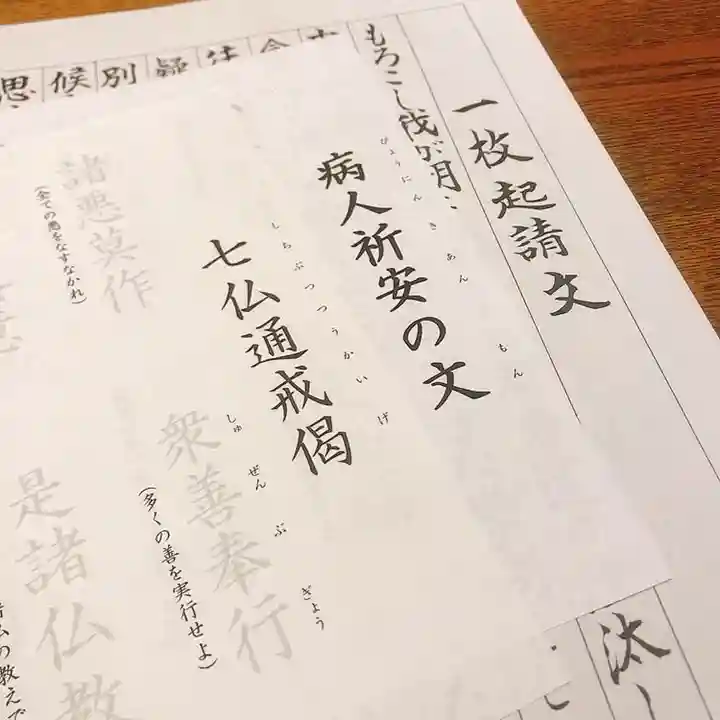 一枚起請文
もろこし我が
汰
疑
別
候
思
びょうにんきあん もん
病人祈安の文
しちぶつつうかいげ
七仏通戒偈
諸悪莫作
(全ての悪をなすなかれ)
しゅぜんぶぎょう
衆善奉行
(多くの善を実行せよ)
是諸仏教
仏の教えで